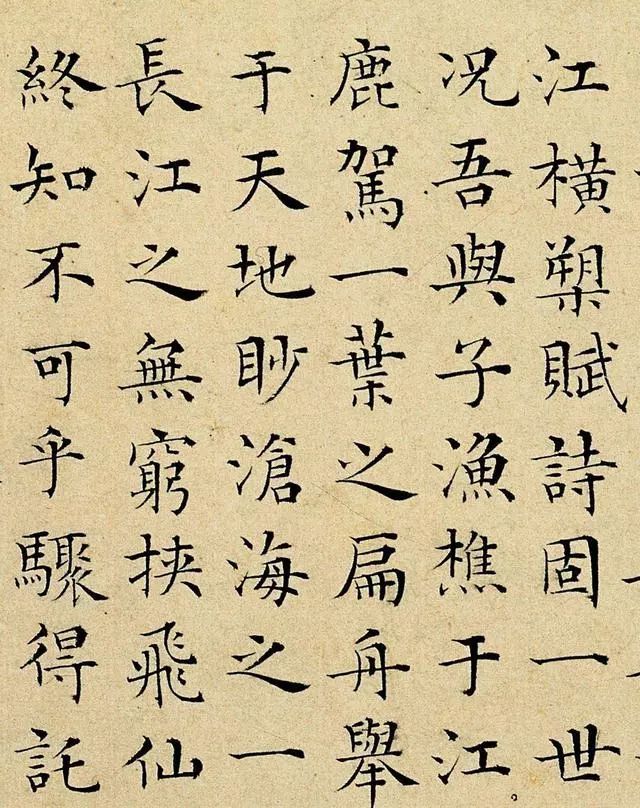 江橫槊賦詩固一世
况吾與子漁樵于江
鹿駕一葉之扁舟舉
于天地眇滄海之一
長江之無窮挾飛仙
終知不可乎驟得託